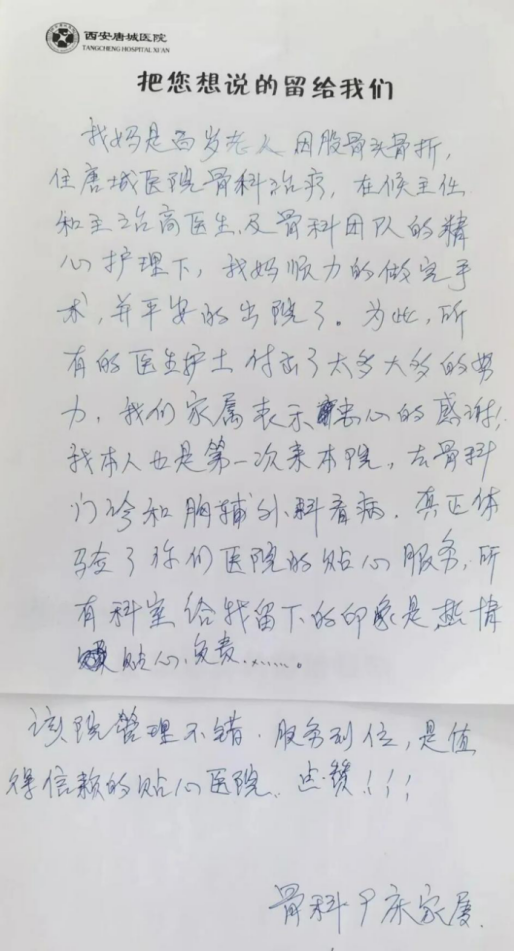 西安唐城医院
TANGCHENG HOSPITAL XI'AN
把您想说的留给我们
我妈是百岁老人因股骨头骨折,
住唐城医院骨科治疗,在候主任
和主治高医生,及骨科团队的精
心护理下,我妈顺力的做完手
术,并平安的出院了。为此,所
有的医生护士付出了太多太多的努
力,我们家属表示忠心的感谢!
我本人也是第一次来本院,去骨科
门诊和胸辅外科看病.真正体
验了你们医院的贴心服务.所
有科室给我留下的印象是热情
贴心、负责.......。
该院管理不错.服务到位,是值
得信赖的贴心医院.点赞!!!
骨科 床家属.